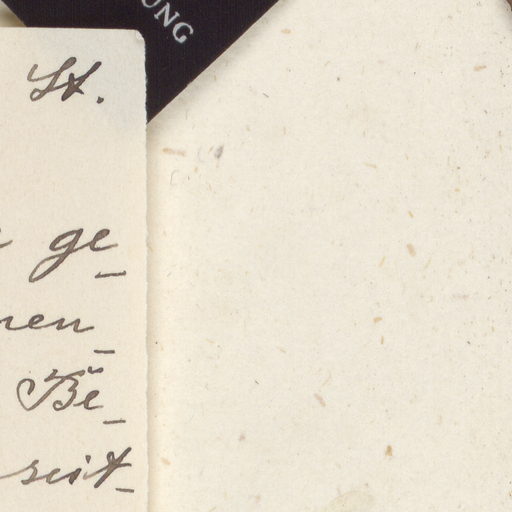 UNG
St.
ge-
nen-
Be-
seit-